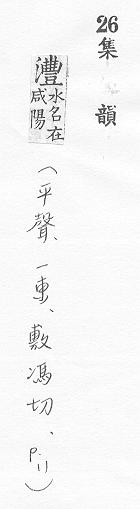 26
集韻
灃水名在
咸陽
（平聲、一東、敷馮切、P.11）